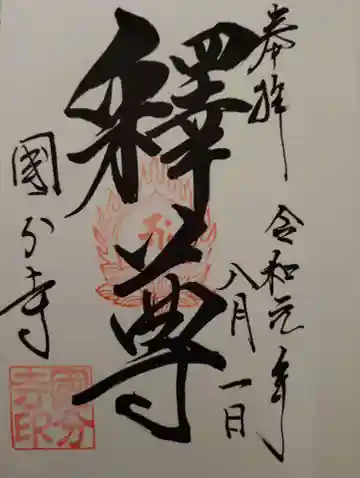 奉拝
令和元年
八月一日
釋尊
國分寺
國分寺印